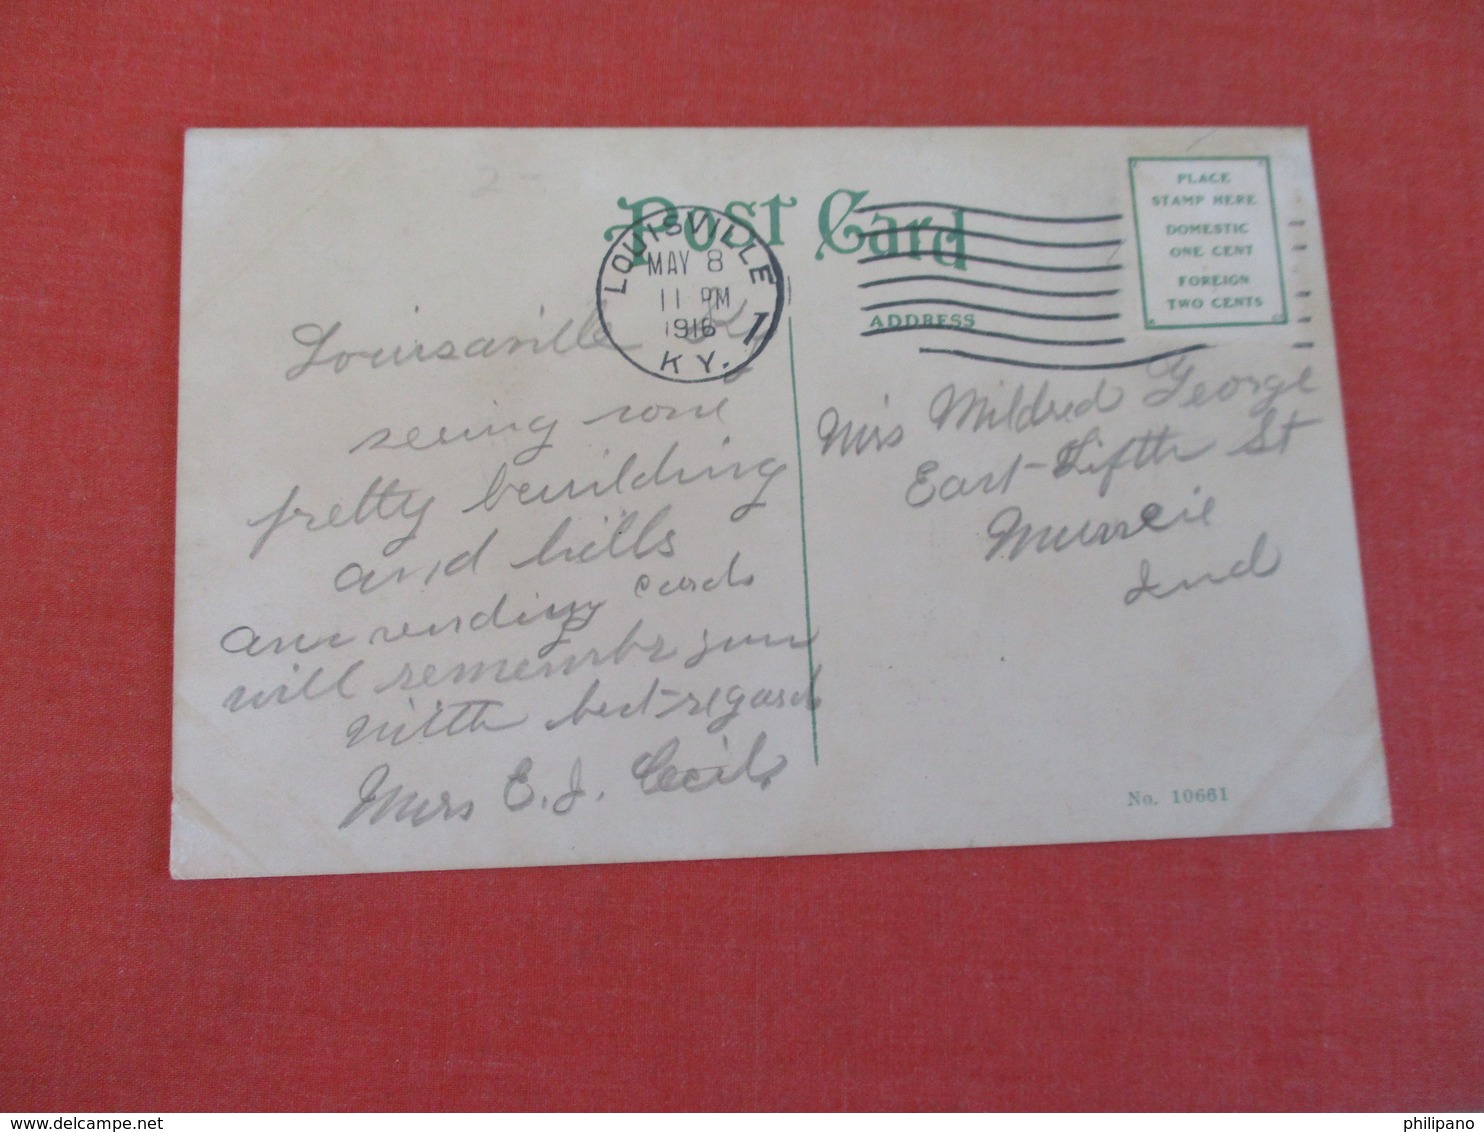 Post Card
LOUISVILLE
MAY 8
11 PM
1916
KY.
1
PLACE
STAMP HERE
DOMESTIC
ONE CENT
FOREIGN
TWO CENTS
ADDRESS
2-
Louisaville Ky
seeing some
pretty beuilding
and hills
am sending cards
will remembr you
with best regards
Mrs E. J. Cecil.
Miss Mildred George
East Fifth St
Munceie
Ind
No. 10661
philipano